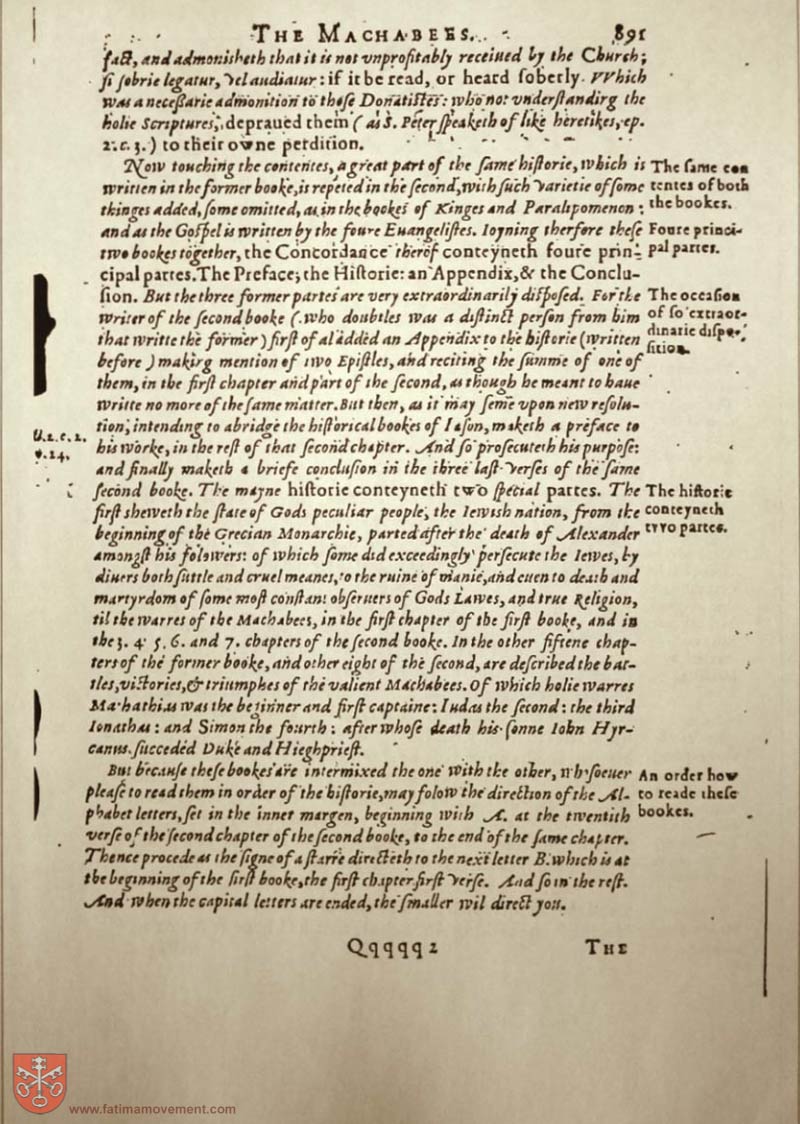 THE MACHABEES. 891
fact, and admonisheth that it is not vnprofitably receiued by the Church;
si sobrie legatur, vel audiatur: if it be read, or heard soberly. VVhich
was a necessarie admonition to those Donatistes: who not vnderstanding the
holie Scriptures, depraued them (as S. Peter speaketh of like heretikes, ep.
2. c. 3.) to their owne perdition.
Now touching the contentes, a great part of the same historie, which is
written in the former booke, is repeted in the second, with such varietie of some
thinges added, some omitted, as in the bookes of Kinges and Paralipomenon:
and as the Gospel is written by the foure Euangelistes. Ioyning therfore these
two bookes together, the Concordance therof conteyneth foure prin-
cipal partes. The Preface; the Historie: an Appendix, & the Conclu-
sion. But the three former partes are very extraordinarily disposed. For the
writer of the second booke (who doubtles was a distinct person from him
that writte the former) first of al added an Appendix to the historie (written
before) making mention of two Epistles, and reciting the summe of one of
them, in the first chapter and part of the second, as though he meant to haue
writte no more of the same matter. But then, as it may seme vpon new resolu-
tion, intending to abridge the historical bookes of Iason, maketh a preface to
his worke, in the rest of that second chapter. And so prosecuteth his purpose:
and finally maketh a briefe conclusion in the three last verses of the same
second booke. The mayne historie conteyneth two special partes. The
first sheweth the state of Gods peculiar people, the Iewish nation, from the
beginning of the Grecian Monarchie, parted after the death of Alexander
amongst his folowers: of which some did exceedingly persecute the Iewes, by
diuers both suttle and cruel meanes, to the ruine of manie, and euen to death and
martyrdom of some most constant obseruers of Gods Lawes, and true Religion,
til the warres of the Machabees, in the first chapter of the first booke, and in
the 3. 4. 5. 6. and 7. chapters of the second booke. In the other fiftene chap-
ters of the former booke, and other eight of the second, are described the bat-
tles, victories, & triumphes of the valient Machabees. Of which holie warres
Mathathias was the beginner and first captaine: Iudas the second: the third
Ionathas: and Simon the fourth: after whose death his sonne Iohn Hyr-
canus succeded Duke and Hieghpriest.
But because these bookes are intermixed the one with the other, whosoeuer
please to read them in order of the historie, may folow the direction of the Al-
phabet letters, set in the inner margen, beginning with A. at the twentith
verse of the second chapter of the second booke, to the end of the same chapter.
Thence procede as the signe of a starre directeth to the next letter B. which is at
the beginning of the first booke, the first chapter first verse. And so in the rest.
And when the capital letters are ended, the smaller wil direct you.
Qqqqq 2 THE
The same con
tentes of both
the bookes.
Foure princi-
pal partes.
The occasion
of so extraor-
dinarie dispo-
sition.
li. 2. c. 2.
v. 24.
The historie
conteyneth
two partes.
An order how
to reade these
bookes.
www.fatimamovement.com